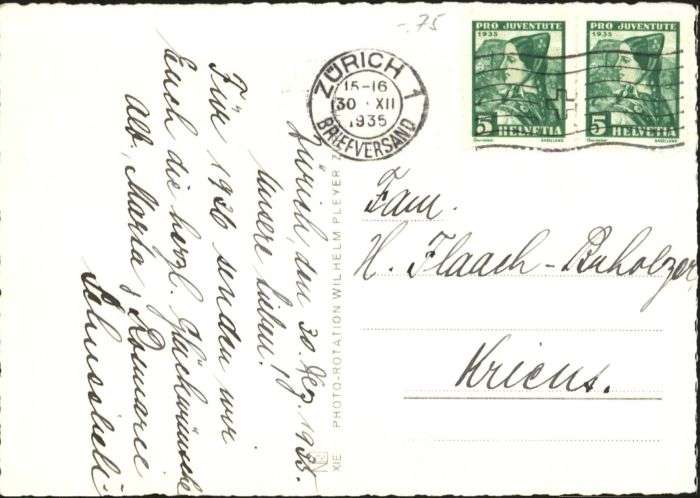 -.75
PRO JUVENTUTE
1935
5
HELVETIA
BASELLAND
PRO JUVENTUTE
1935
5
HELVETIA
BASELLAND
ZÜRICH 1
15-16
30. XII
1935
BRIEFVERSAND
Zürich, den 30. Dez. 1935.
Unsere Lieben!
Für 1936 senden wir
Euch die herzl. Glückwünsche
Alb., Marta, Rosmarie
Schneebeli
XIE PHOTO-ROTATION WILHELM PLEYER Z
Fam.
H. Flaach-Buholzer
Kriens.